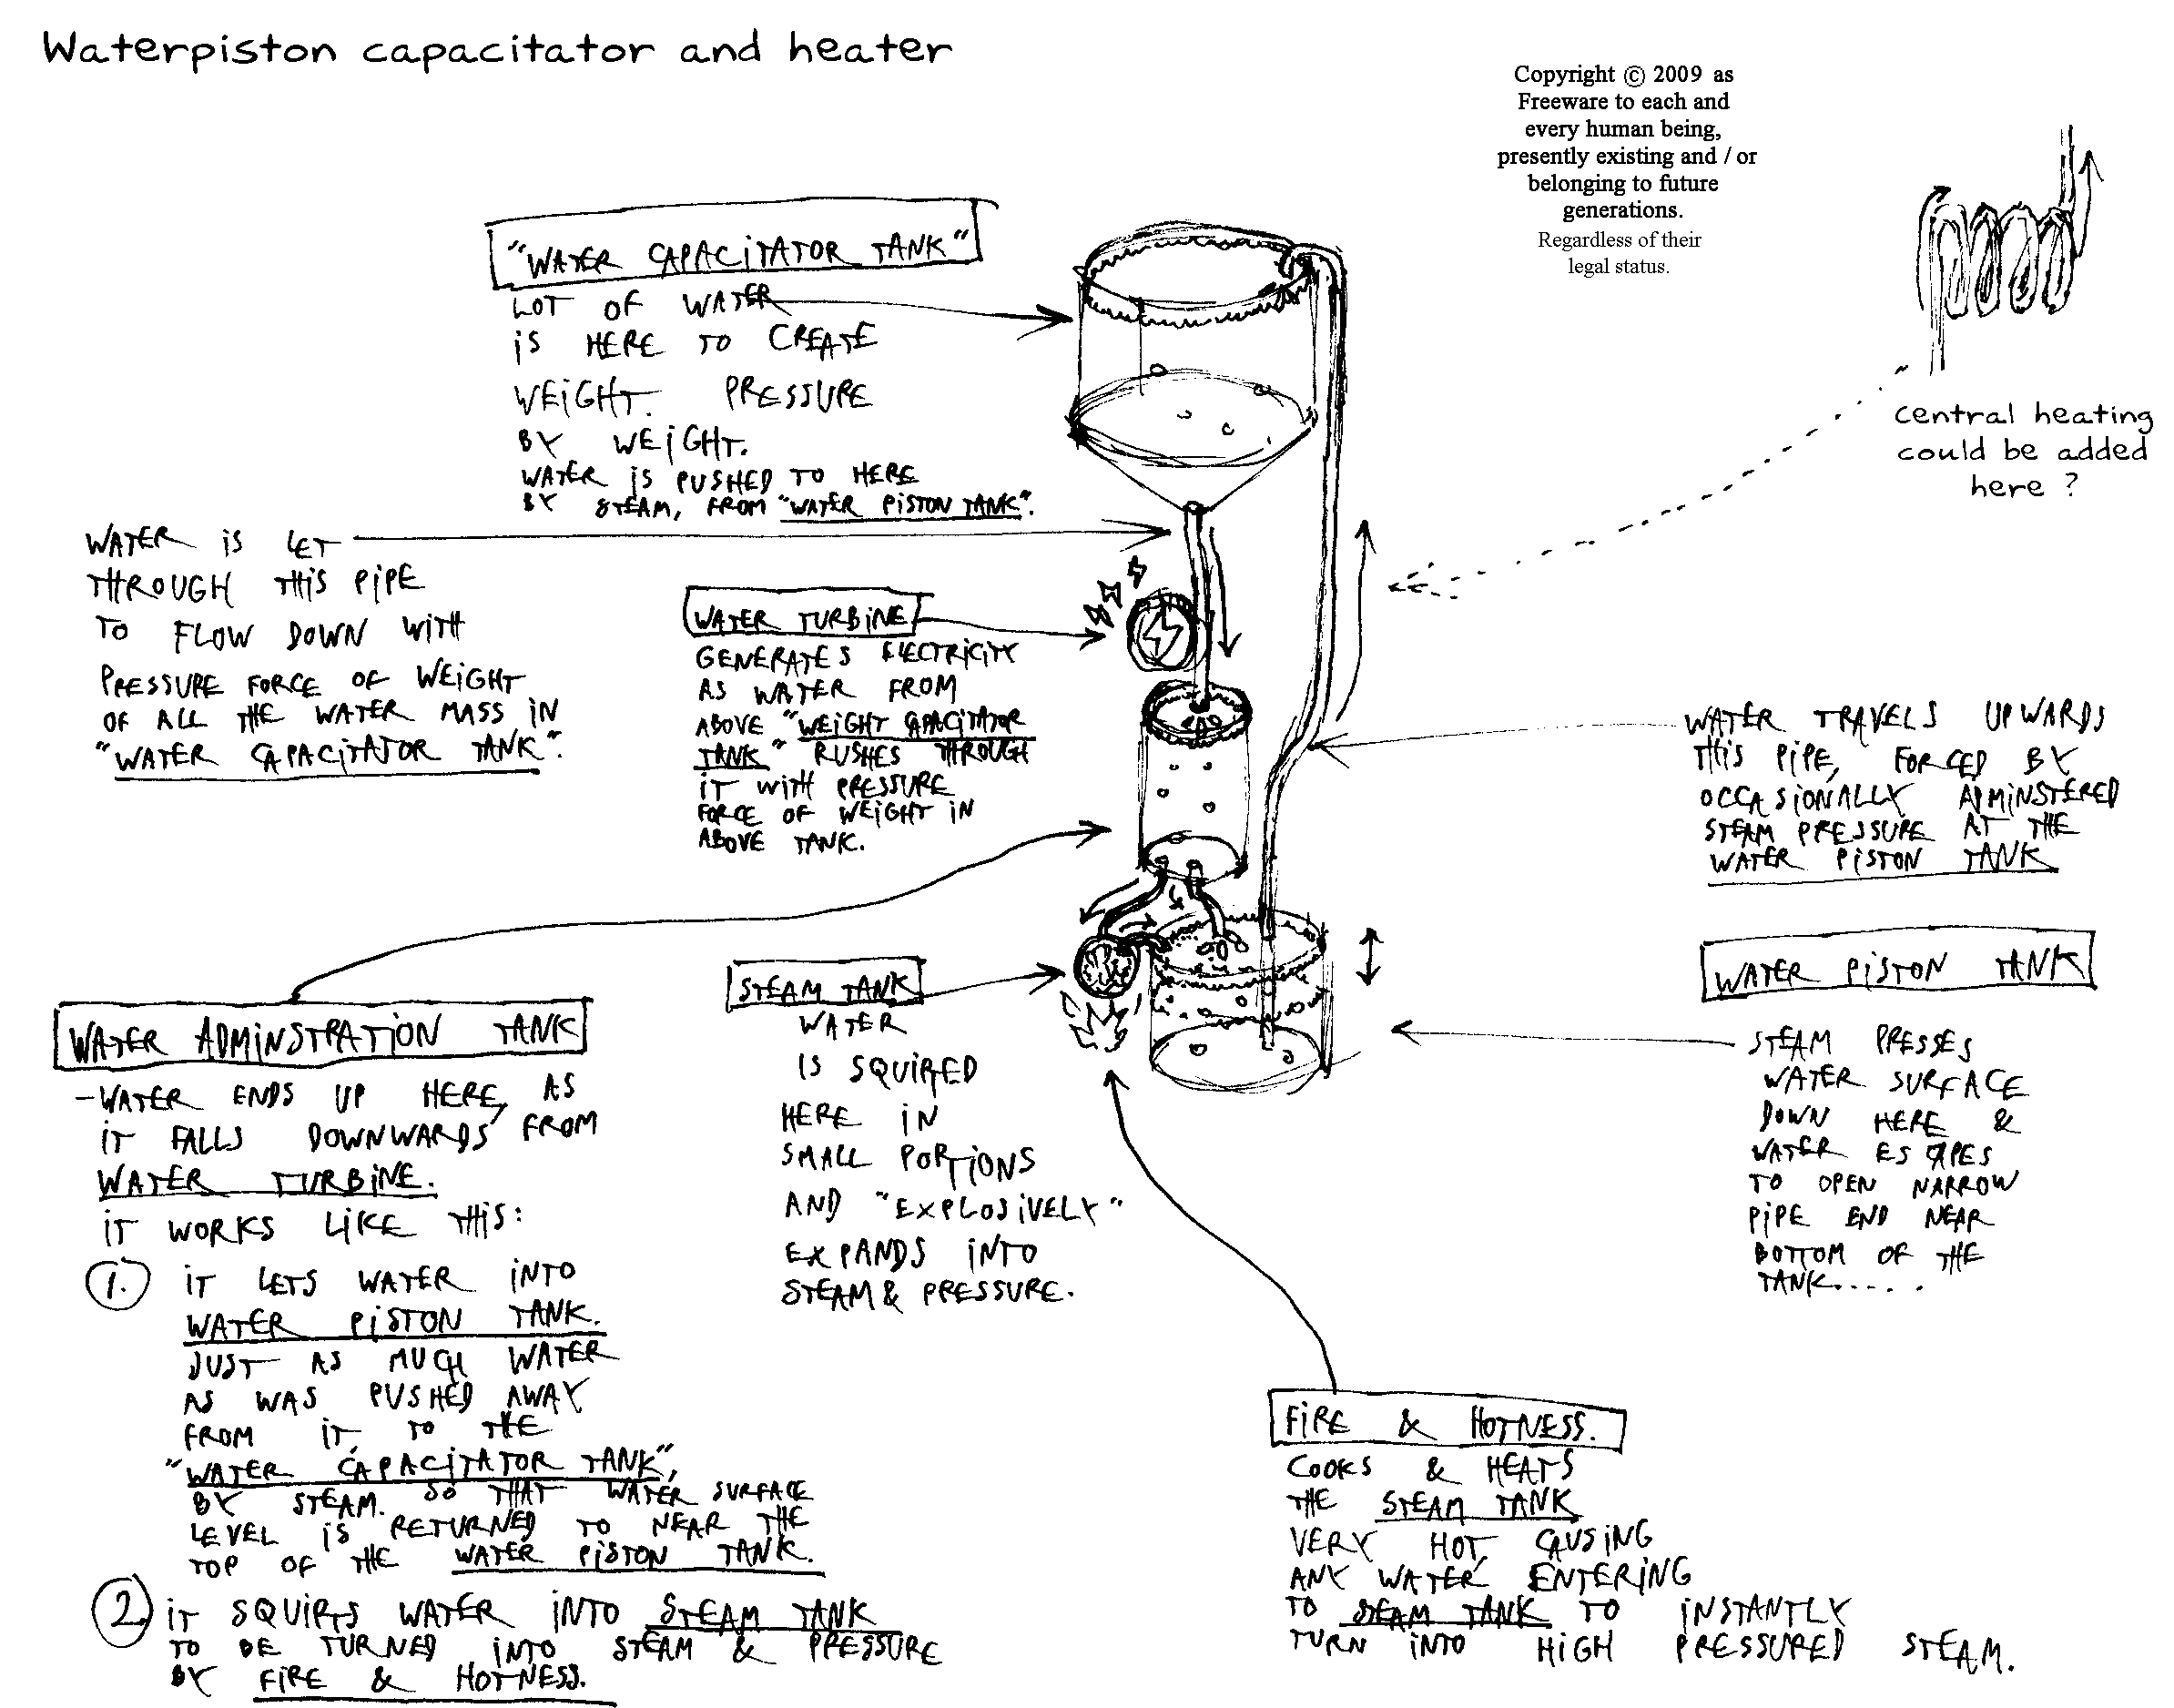 Waterpiston capacitator and heater
Copyright © 2009 as
Freeware to each and
every human being,
presently existing and / or
belonging to future
generations.
Regardless of their
legal status.
central heating
could be added
here ?
"WATER CAPACITATOR TANK"
LOT OF WATER
IS HERE TO CREATE
WEIGHT. PRESSURE
BY WEIGHT.
WATER IS PUSHED TO HERE
BY STEAM, FROM "WATER PISTON TANK".
WATER IS LET
THROUGH THIS PIPE
TO FLOW DOWN WITH
PRESSURE FORCE OF WEIGHT
OF ALL THE WATER MASS IN
"WATER CAPACITATOR TANK".
WATER TURBINE
GENERATES ELECTRICITY
AS WATER FROM
ABOVE "WEIGHT CAPACITATOR
TANK" RUSHES THROUGH
IT WITH PRESSURE
FORCE OF WEIGHT IN
ABOVE TANK.
WATER TRAVELS UPWARDS
THIS PIPE, FORCED BY
OCCASIONALLY ADMINSTERED
STEAM PRESSURE AT THE
WATER PISTON TANK
WATER PISTON TANK
STEAM PRESSES
WATER SURFACE
DOWN HERE &
WATER ESCAPES
TO OPEN NARROW
PIPE END NEAR
BOTTOM OF THE
TANK.....
STEAM TANK
WATER
IS SQUIRED
HERE IN
SMALL PORTIONS
AND "EXPLOSIVELY"
EXPANDS INTO
STEAM & PRESSURE.
WATER ADMINSTRATION TANK
-WATER ENDS UP HERE, AS
IT FALLS DOWNWARDS FROM
WATER TURBINE.
IT WORKS LIKE THIS:
1. IT LETS WATER INTO
WATER PISTON TANK.
JUST AS MUCH WATER
AS WAS PUSHED AWAY
FROM IT, TO THE
"WATER CAPACITATOR TANK",
BY STEAM. SO THAT WATER SURFACE
LEVEL IS RETURNED TO NEAR THE
TOP OF THE WATER PISTON TANK.
2. IT SQUIRTS WATER INTO STEAM TANK
TO BE TURNED INTO STEAM & PRESSURE
BY FIRE & HOTNESS.
FIRE & HOTNESS.
COOKS & HEATS
THE STEAM TANK
VERY HOT, CAUSING
ANY WATER ENTERING
TO STEAM TANK TO INSTANTLY
TURN INTO HIGH PRESSURED STEAM.